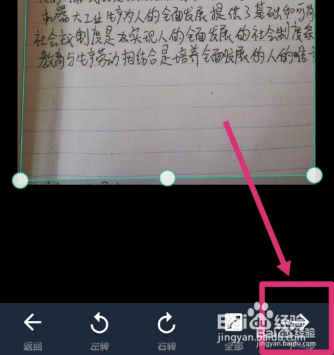 机器大工业生产为人的全面发展提供了基础和可
社会主制度是去实现人的全面发展的社会制度条
教育与生产劳动相结合是培养全面发展的人的唯
返回
左转
右转
全部
Baidu 经验
jingyan.baidu.com